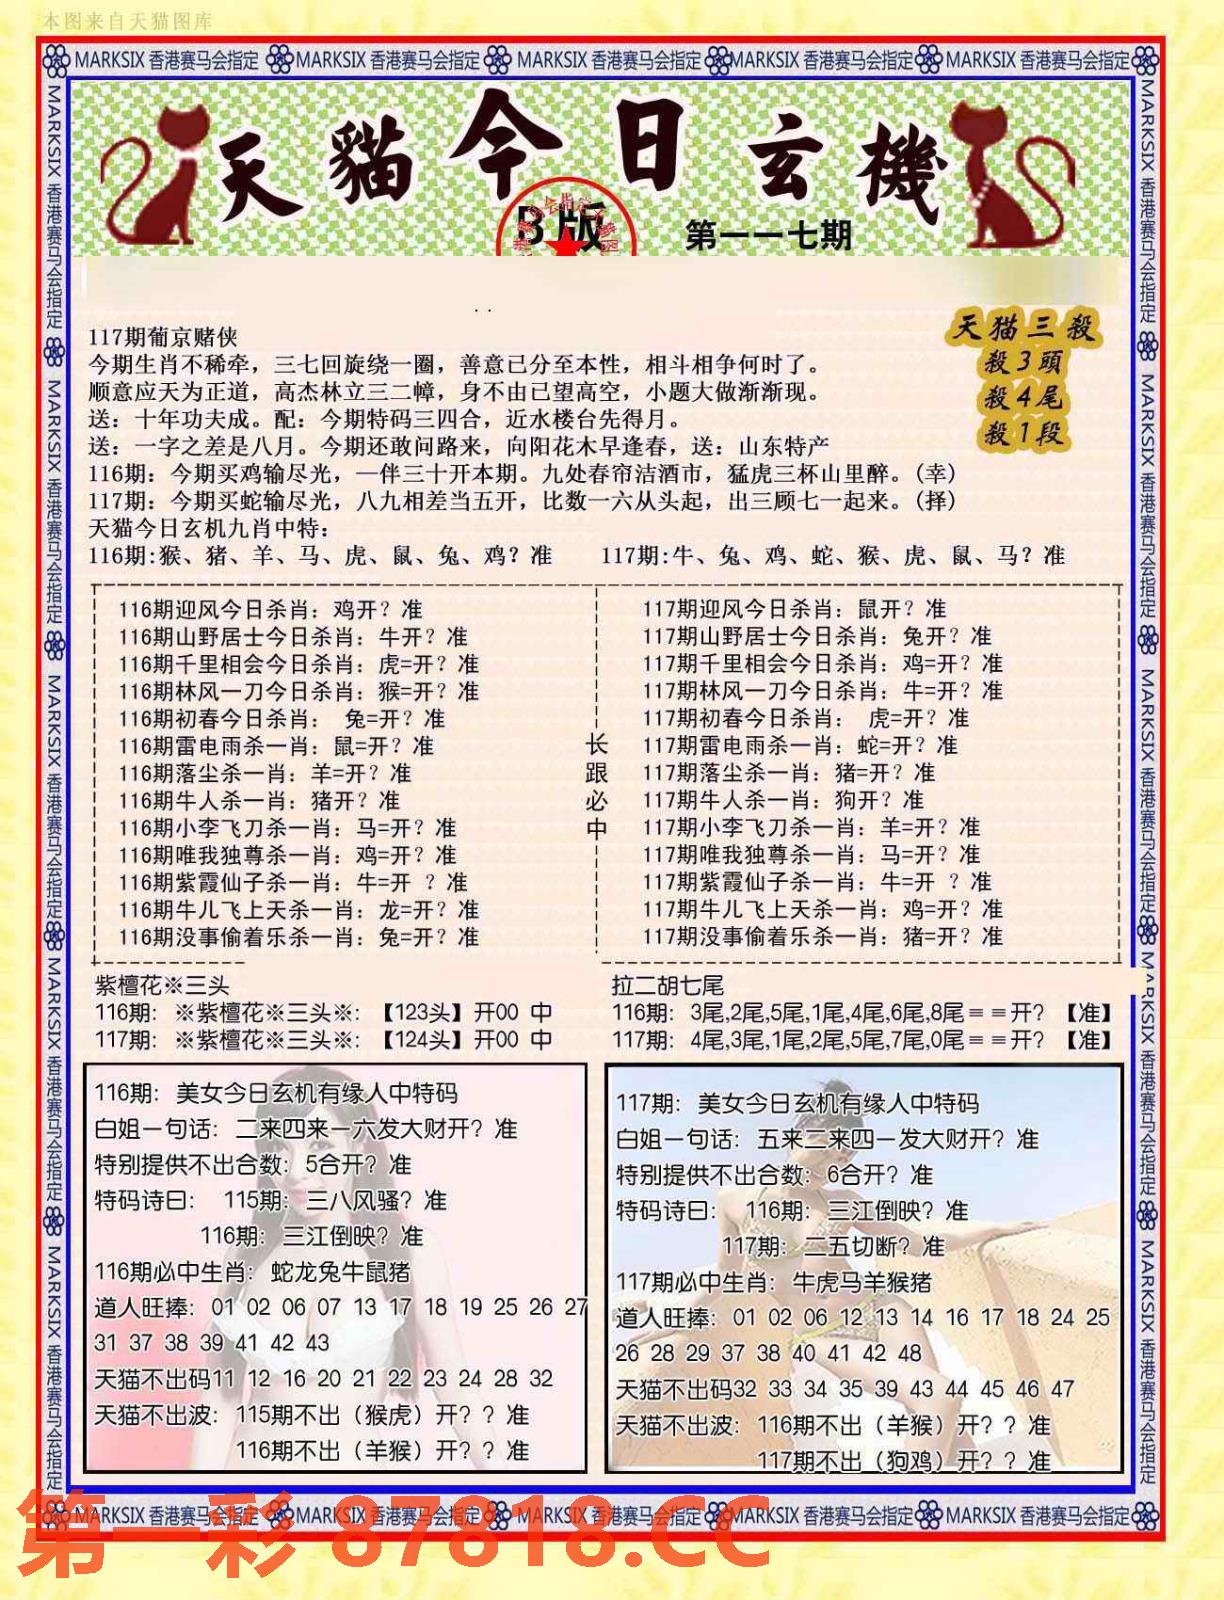 本图来自天猫图库
MARKSIX 香港赛马会指定 MARKSIX 香港赛马会指定 MARKSIX 香港赛马会指定 MARKSIX 香港赛马会指定 MARKSIX 香港赛马会指定
天貓今日玄機
B版
第一一七期
天猫三殺
殺3頭
殺4尾
殺1段
117期葡京赌侠
今期生肖不稀牵，三七回旋绕一圈，善意已分至本性，相斗相争何时了。
顺意应天为正道，高杰林立三二幛，身不由已望高空，小题大做渐渐现。
送：十年功夫成。配：今期特码三四合，近水楼台先得月。
送：一字之差是八月。今期还敢问路来，向阳花木早逢春，送：山东特产
116期：今期买鸡输尽光，一伴三十开本期。九处春帘洁酒市，猛虎三杯山里醉。(幸)
117期：今期买蛇输尽光，八九相差当五开，比数一六从头起，出三顾七一起来。(择)
天猫今日玄机九肖中特：
116期:猴、猪、羊、马、虎、鼠、兔、鸡？准 117期:牛、兔、鸡、蛇、猴、虎、鼠、马？准
116期迎风今日杀肖：鸡开？准
116期山野居士今日杀肖：牛开？准
116期千里相会今日杀肖：虎=开？准
116期林风一刀今日杀肖：猴=开？准
116期初春今日杀肖： 兔=开？准
116期雷电雨杀一肖：鼠=开？准
116期落尘杀一肖：羊=开？准
116期牛人杀一肖：猪开？准
116期小李飞刀杀一肖：马=开？准
116期唯我独尊杀一肖：鸡=开？准
116期紫霞仙子杀一肖：牛=开 ？准
116期牛儿飞上天杀一肖：龙=开？准
116期没事偷着乐杀一肖：兔=开？准
长跟必中
117期迎风今日杀肖：鼠开？准
117期山野居士今日杀肖：兔开？准
117期千里相会今日杀肖：鸡=开？准
117期林风一刀今日杀肖：牛=开？准
117期初春今日杀肖： 虎=开？准
117期雷电雨杀一肖：蛇=开？准
117期落尘杀一肖：猪=开？准
117期牛人杀一肖：狗开？准
117期小李飞刀杀一肖：羊=开？准
117期唯我独尊杀一肖：马=开？准
117期紫霞仙子杀一肖：牛=开 ？准
117期牛儿飞上天杀一肖：鸡=开？准
117期没事偷着乐杀一肖：猪=开？准
紫檀花※三头
116期：※紫檀花※三头※：【123头】开00 中
117期：※紫檀花※三头※：【124头】开00 中
拉二胡七尾
116期：3尾,2尾,5尾,1尾,4尾,6尾,8尾＝＝开？【准】
117期：4尾,3尾,1尾,2尾,5尾,7尾,0尾＝＝开？【准】
116期：美女今日玄机有缘人中特码
白姐一句话：二来四来一六发大财开？准
特别提供不出合数：5合开？准
特码诗曰： 115期：三八风骚？准
116期：三江倒映？准
116期必中生肖：蛇龙兔牛鼠猪
道人旺捧：01 02 06 07 13 17 18 19 25 26 27
31 37 38 39 41 42 43
天猫不出码11 12 16 20 21 22 23 24 28 32
天猫不出波：115期不出（猴虎）开？？准
116期不出（羊猴）开？？准
117期：美女今日玄机有缘人中特码
白姐一句话：五来二来四一发大财开？准
特别提供不出合数：6合开？准
特码诗曰： 116期：三江倒映？准
117期：二五切断？准
117期必中生肖：牛虎马羊猴猪
道人旺捧：01 02 06 12 13 14 16 17 18 24 25
26 28 29 37 38 40 41 42 48
天猫不出码32 33 34 35 39 43 44 45 46 47
天猫不出波：116期不出（羊猴）开？？准
117期不出（狗鸡）开？？准
MARKSIX 香港赛马会指定 MARKSIX 香港赛马会指定 MARKSIX 香港赛马会指定 MARKSIX 香港赛马会指定 MARKSIX 香港赛马会指定
第一彩 87818.CC
MARKSIX 香港赛马会指定 MARKSIX 香港赛马会指定 MARKSIX 香港赛马会指定 MARKSIX 香港赛马会指定 MARKSIX 香港赛马会指定
MARKSIX 香港赛马会指定 MARKSIX 香港赛马会指定 MARKSIX 香港赛马会指定 MARKSIX 香港赛马会指定 MARKSIX 香港赛马会指定